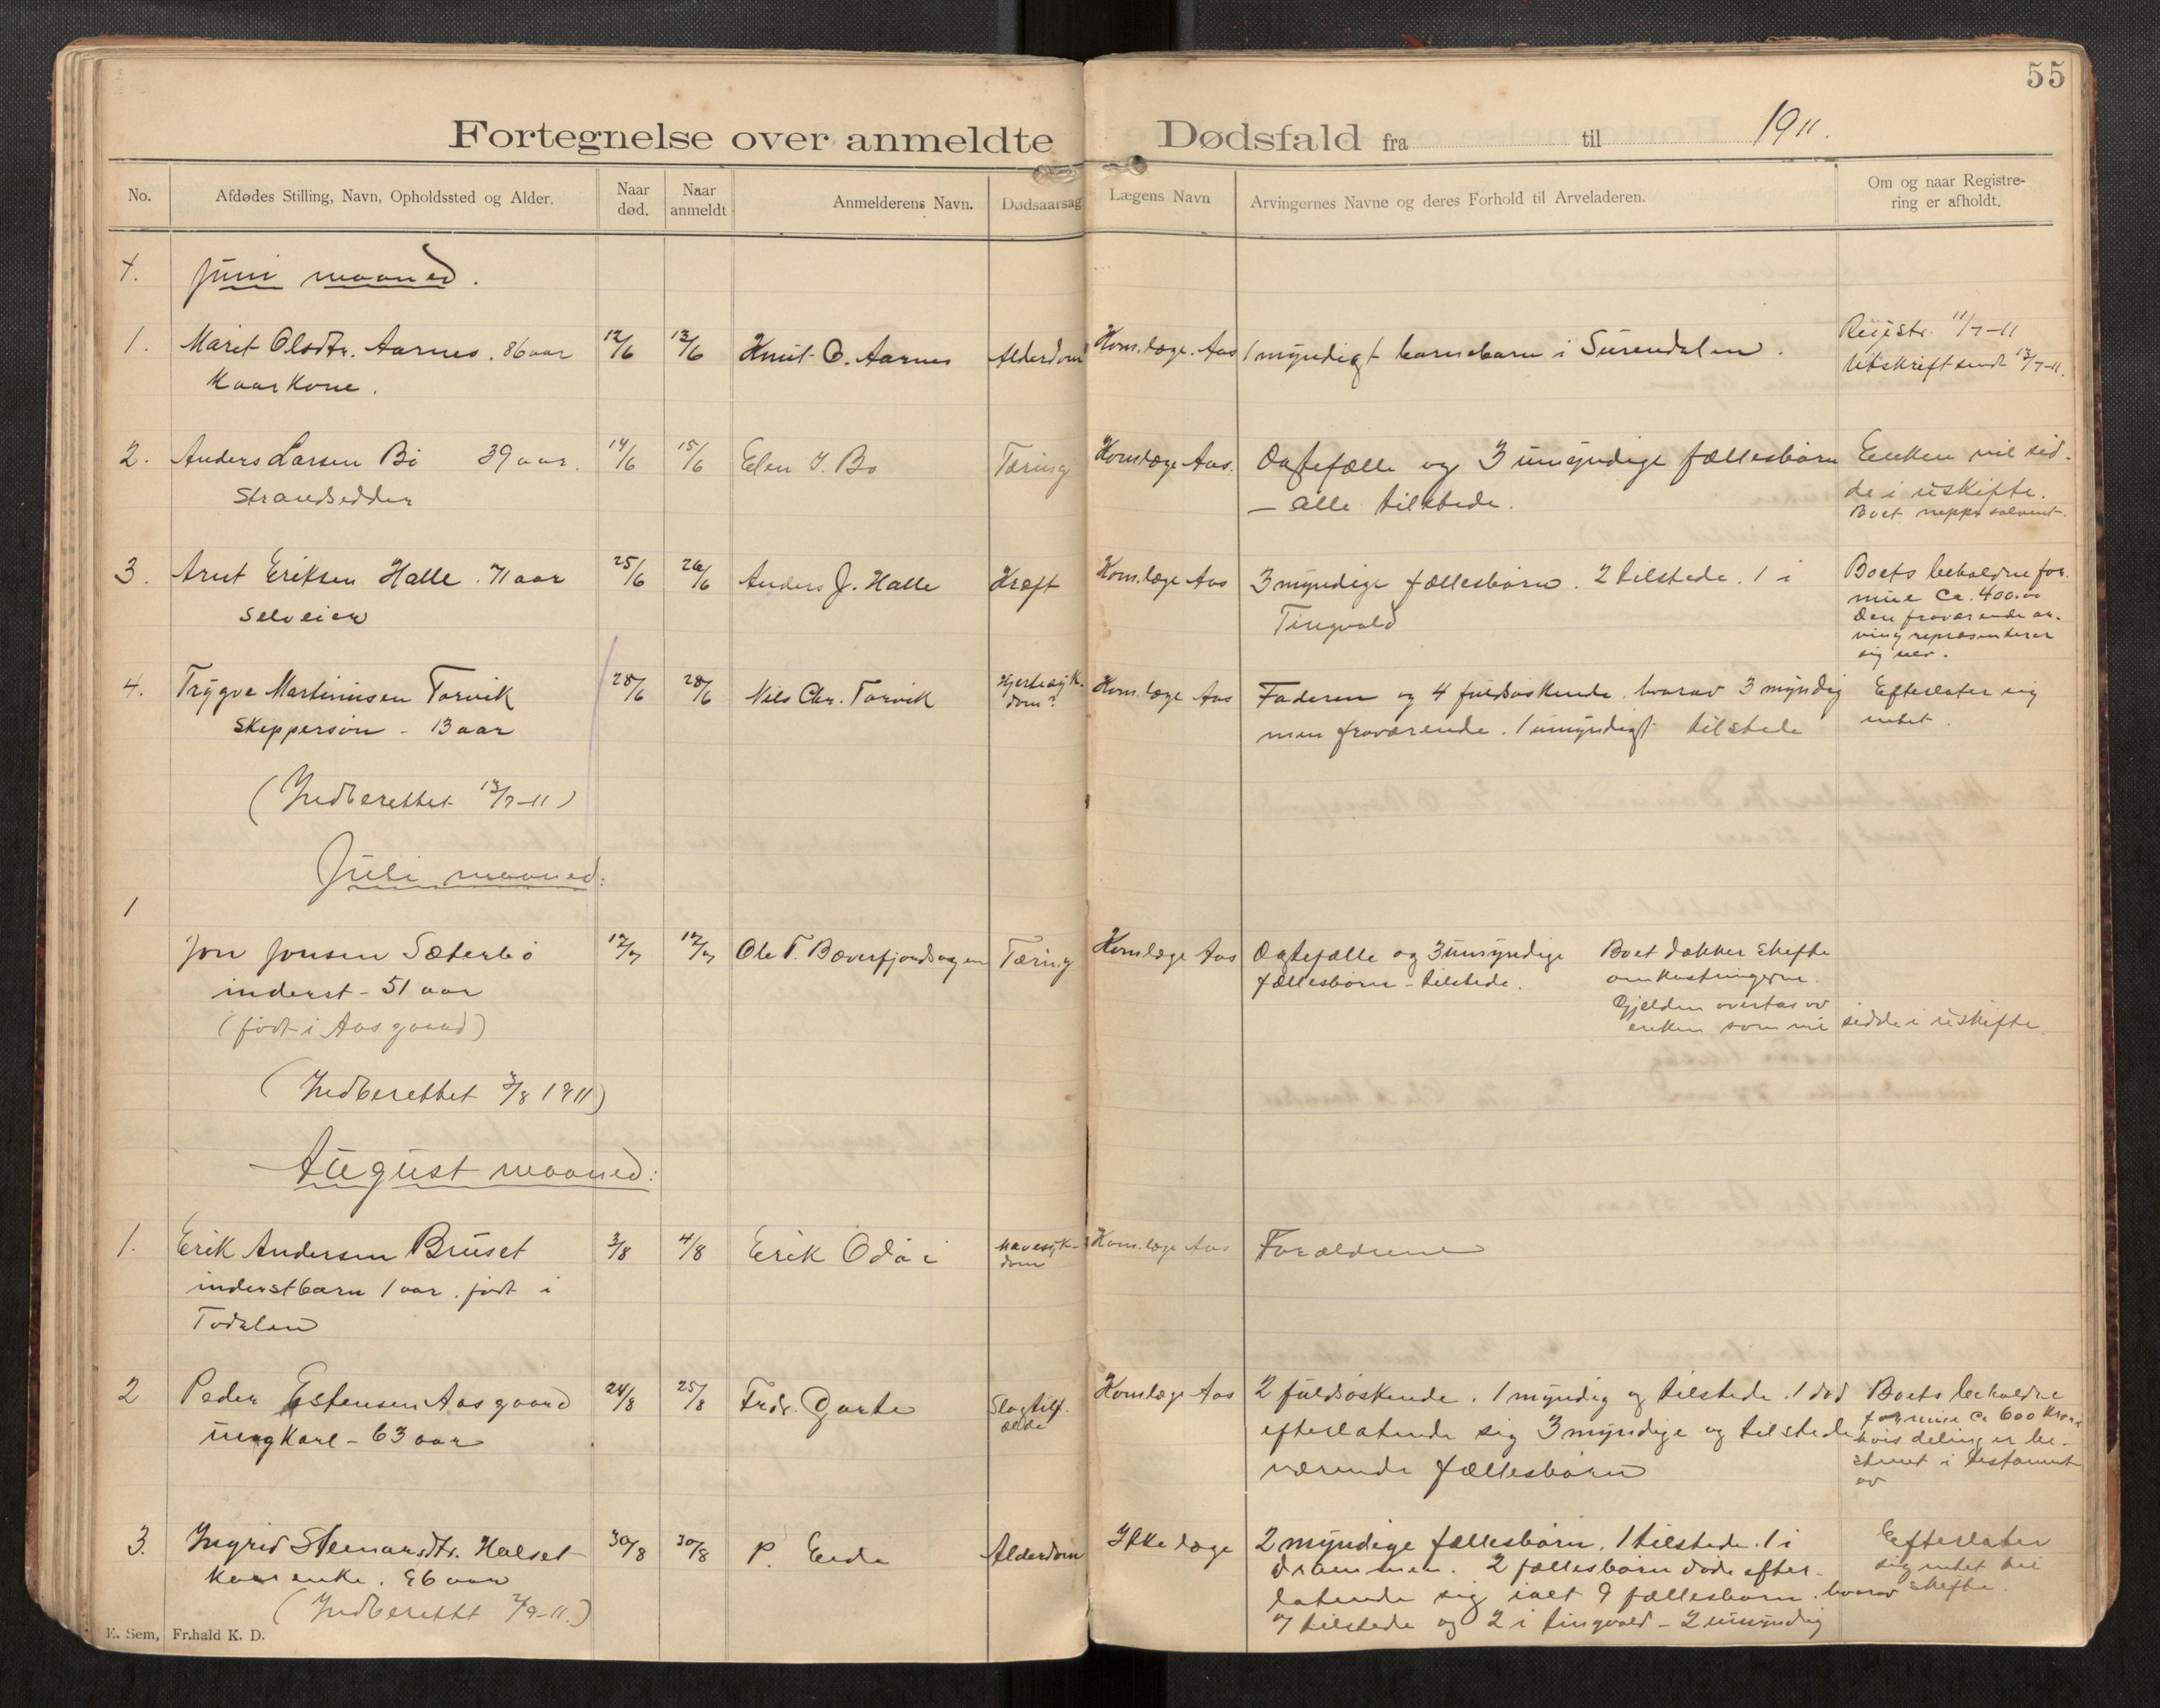 55
Fortegnelse over anmeldte Dødsfald fra til 1911.
No. Afdødes Stilling, Navn, Opholdssted og Alder. Naar død. Naar anmeldt Anmelderens Navn. Dødsaarsag Lægens Navn Arvingernes Navne og deres Forhold til Arveladeren. Om og naar Registrering er afholdt.
Juni maaned.
1. Marit Olsdtr. Aarnes. 86 aar 12/6 13/6 Knut O. Aarnes Alderdom Kom.læge. Aas 1 myndigt barnebarn i Surendalen. Regist. 11/7-11
Kaarkone. Utskrift sendt 13/7-11.
2. Anders Larsen Bö 39 aar. 14/6 15/6 Elen J. Bö Tæring Komlæge Aas. Ægtefælle og 3 umyndige fællesbörn Enken vil sid-
Strandsidder — alle tilstede. de i uskifte.
Boet neppe solvent.
3. Arnt Eriksen Halle. 71 aar 25/6 26/6 Anders J. Halle Kræft Kom.læge Aas 3 myndige fællesbörn. 2 tilstede. 1 i Boets beholdne for-
selveier Tingvold mue ca. 400.00
Den fraværende ar-
ving repræsenterer
sig selv.
4. Trygve Martinusen Torvik 28/6 28/6 Nils Chr. Torvik Hjertesyk- Kom.læge Aas Faderen og 4 fuldsöskende. hvorav 3 myndig Efterlater sig
Skippersön - 13 aar dom? men fraværende. 1 umyndigt tilstede intet.
(Indberettet 13/7-11)
Juli maaned:
1
Jon Jonsen Sæterbö 12/7 12/7 Ole T. Bæverfjordsøgen Tæring Komlæge Aas Ægtefælle og 3 umyndige Boet dækker skifte
inderst - 51 aar fællesbörn - tilstede. omkostningerne.
(födt i Aasgaard) Gjelden overtas av
enken som vil sidde i uskifte.
(Indberettet 3/8 1911)
August maaned:
1. Erik Andersen Bruset 3/8 4/8 Erik Odöi Mavesyk- Kom.læge Aas Forældrene
inderstbarn 1 aar. födt i dom
Todalen
2 Peder Estensen Aasgaard 24/8 25/8 Fredr. Garte Slagtilf- Komlæge Aas 2 fuldsöskende. 1 myndig og tilstede. 1 död Boets beholdne
ungkarl - 63 aar ælde efterlatende sig 3 myndige og tilstede formue ca 600 kroner
værende fællesbörn hvis deling er be-
stemt i testament
av
3. Ingrid Steinarsdtr. Halset 30/8 30/8 P. Eide Alderdom Ikke læge 2 myndige fællesbörn. 1 tilstede. 1 i Efterlater
kaarenke. 96 aar Drammen. 2 fællesbörn döde efter- sig intet til
(Indberettet 7/9-11.) latende sig ialt 9 fællesbörn. hvorav skifte.
7 tilstede og 2 i Tingvold - 2 umyndig
E. Sem, Fr.hald K. D.